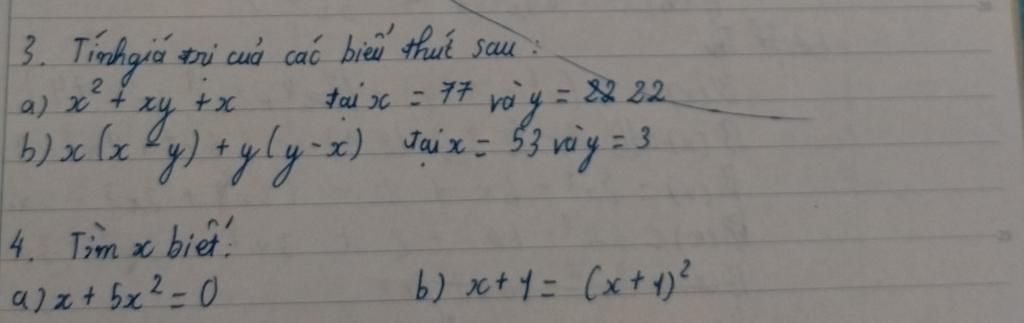 3. Tính giá trị của các biểu thức sau:
a) x² + xy + x tại x = 77 và y = 22
b) x(x - y) + y(y - x) tại x = 53 và y = 3
4. Tìm x biết:
a) x + 5x² = 0 b) x + 1 = (x + 1)²